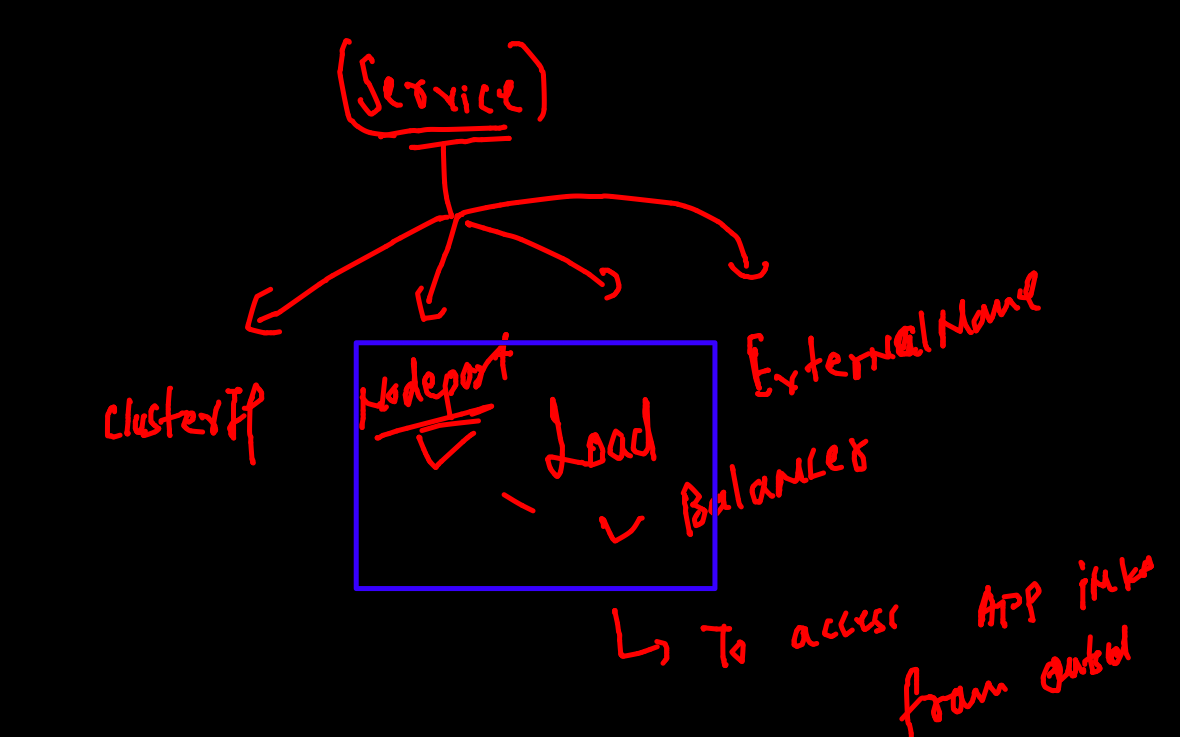 (Service)
ClusterIP
Nodeport
Load
Balancer
ExternalName
To access APP
from